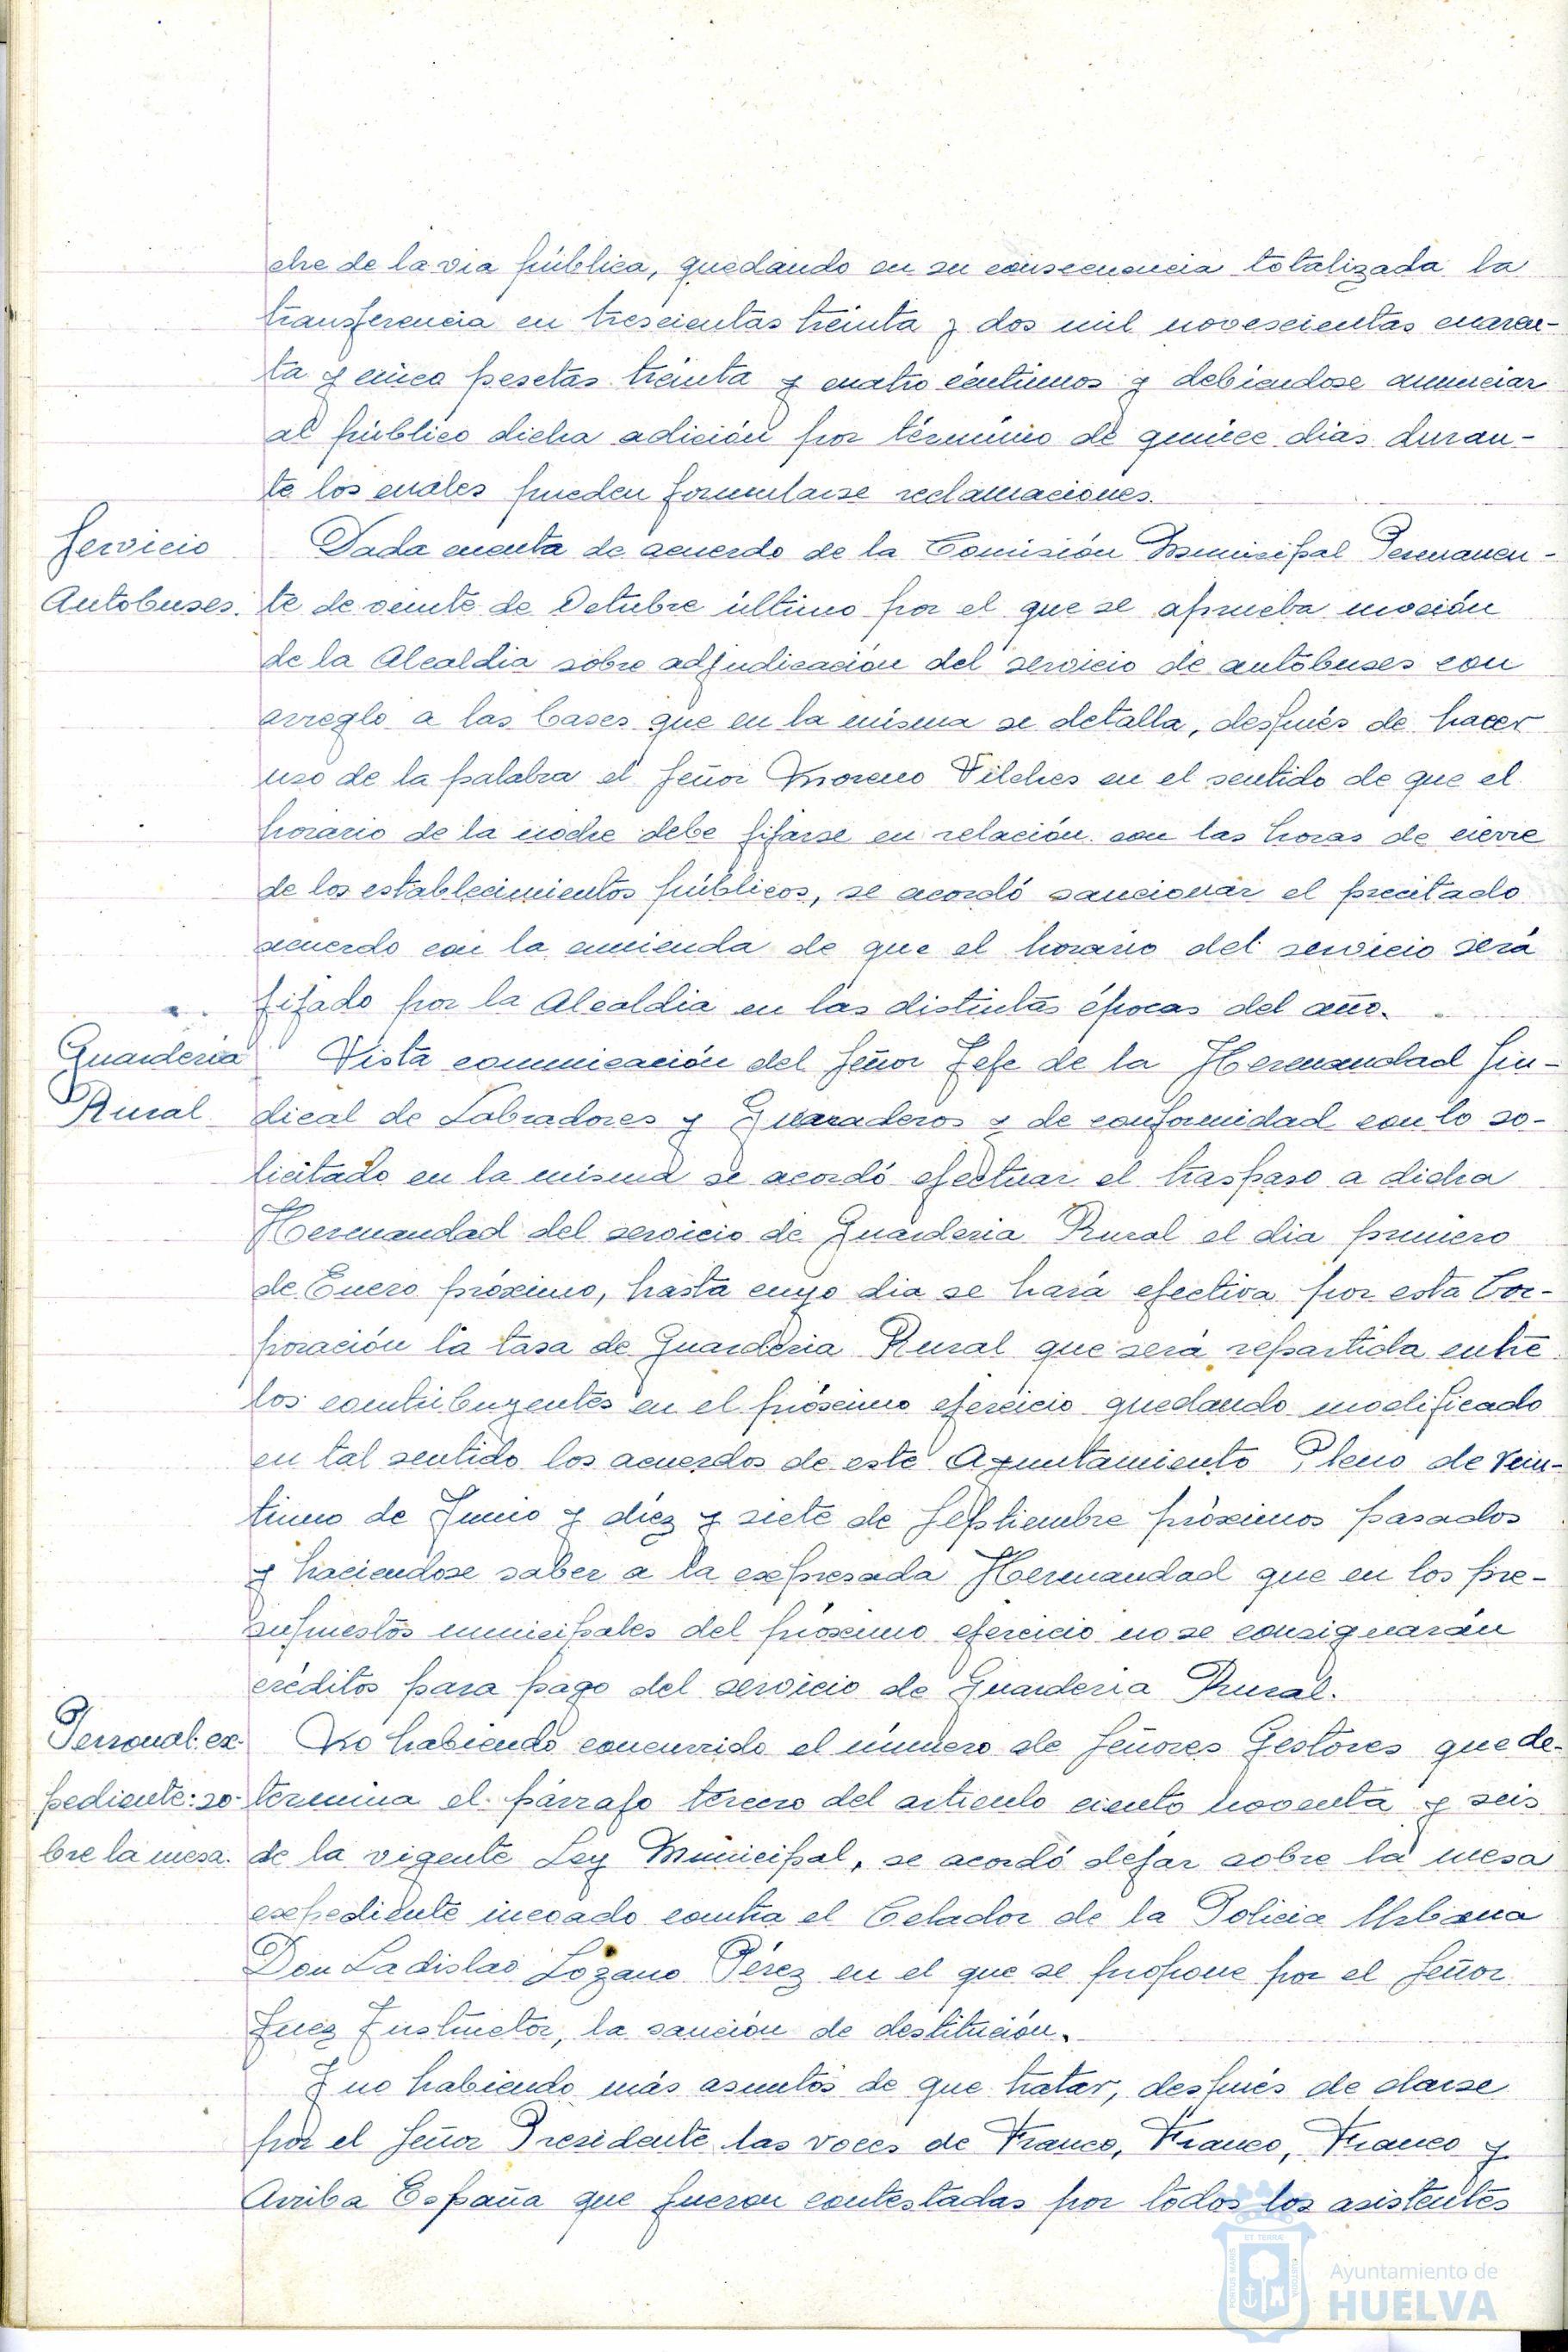 che de la via pública, quedando en su consecuencia totalizada la
transferencia en trescientas treinta y dos mil novescientas cuaren-
ta y cinco pesetas treinta y cuatro céntimos y debiendose anunciar
al público dicha adición por término de quince dias duran-
te los cuales pueden formularse reclamaciones.
Servicio
Autobuses.
Dada cuenta de acuerdo de la Comisión Municipal Permanen-
te de veinte de Octubre último por el que se aprueba moción
de la Alcaldia sobre adjudicación del servicio de autobuses con
arreglo a las bases que en la misma se detalla, después de hacer
uso de la palabra el Señor Moreno Vilches en el sentido de que el
horario de la noche debe fijarse en relación con las horas de cierre
de los establecimientos públicos, se acordó sancionar el precitado
acuerdo con la enmienda de que el horario del servicio será
fijado por la Alcaldia en las distintas épocas del año.
Guarderia
Rural
Vista comunicación del Señor Jefe de la Hermandad Sin-
dical de Labradores y Ganaderos y de conformidad con lo so-
licitado en la misma se acordó efectuar el traspaso a dicha
Hermandad del servicio de Guarderia Rural el dia primero
de Enero próximo, hasta cuyo dia se hará efectiva por esta Cor-
poración la tasa de Guarderia Rural que será repartida entre
los contribuyentes en el próximo ejercicio quedando modificado
en tal sentido los acuerdos de este Ayuntamiento Pleno de vein-
tiuno de Junio y diéz y siete de Septiembre próximos pasados
y haciendose saber a la expresada Hermandad que en los pre-
supuestos municipales del próximo ejercicio no se consignarán
créditos para pago del servicio de Guarderia Rural.
Personal: ex-
pediente: so-
bre la mesa.
No habiendo concurrido el número de Señores Gestores que de-
termina el párrafo tercero del articulo ciento noventa y seis
de la vigente Ley Municipal, se acordó dejar sobre la mesa
expediente incoado contra el Celador de la Policia Urbana
Don Ladislao Lozano Pérez en el que se propone por el Señor
Juez Instructor, la sanción de destitución.
Y no habiendo más asuntos de que tratar, después de darse
por el Señor Presidente las voces de Franco, Franco, Franco y
Arriba España que fueron contestadas por todos los asistentes
PORTUS MARIS ET TERRAE CUSTODIA
Ayuntamiento de
HUELVA